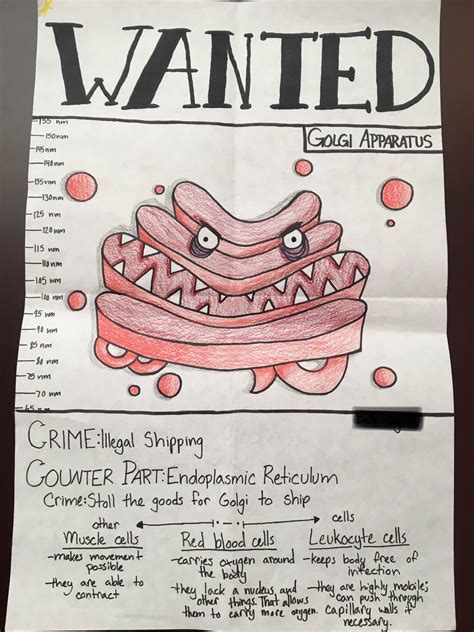 WANTED
GOLGI APPARATUS
155 nm
150nm
145nm
140nm
135nm
130nm
125 nm
120nm
115 nm
110nm
105 nm
100 nm
95 nm
90 nm
85 nm
80 nm
75 nm
70 nm
65 nm
CRIME: Illegal Shipping
COUNTER PART: Endoplasmic Reticulum
Crime: Stoll the goods for Golgi to ship
other cells
Muscle cells
-makes movement
possible
-they are able to
contract
Red blood cells
-carries oxygen around
the body
-they lack a nucleus and
other things. That allows
them to carry more oxygen.
Leukocyte cells
-keeps body free of
infection
-they are highly mobile;
can push through
capillary walls if
necessary.